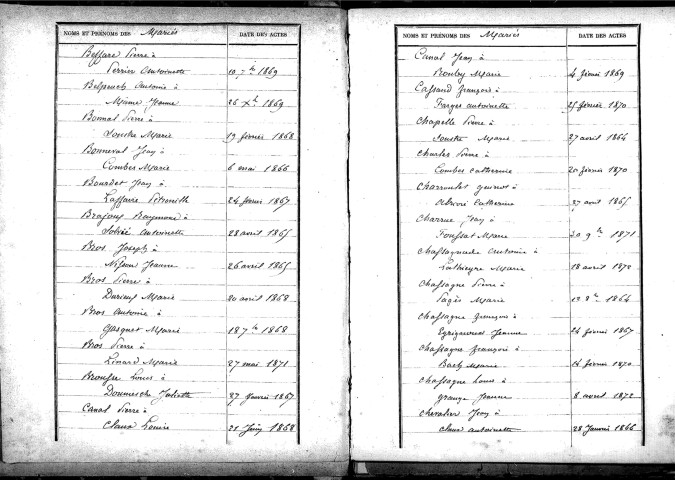 NOMS ET PRÉNOMS DES Mariés DATE DES ACTES
Beffare Pierre à
Perrin Antoinette 10 7bre 1869
Antoine à
Mame Jeanne 26 Xbre 1869
Bonnal Pierre à
Marie 19 février 1868
Bonneval Jean à
Combes Marie 6 mai 1866
Bourdet Jean à
Laffarie Pétronille 24 février 1867
Raymond à
Antoinette 28 avril 1865
Bros Joseph à
Jeanne 26 avril 1865
Bros Pierre à
Durieu Marie 20 avril 1868
Bros Antoine à
Gasquet Marie 18 7bre 1868
Bros Pierre à
Linard Marie 27 mai 1871
Louis à
Juliette 27 Janvier 1867
Canal Pierre à
Claux Louise 21 Juin 1868
NOMS ET PRÉNOMS DES Mariés DATE DES ACTES
Canal Jean à
Rouby Marie 4 février 1869
Cassand françois à
Farges antoinette 25 février 1870
Chapelle Pierre à
Marie 27 avril 1864
Charles Pierre à
Combes Catherine 20 février 1870
à
Catherine 27 avril 1865
Charrue Jean à
Foussat Marie 20 9bre 1871
Antoine à
Marie 18 avril 1872
Chassagne Pierre à
Pagès Marie 1864
Chassagne françois à
Jeanne 24 février 1867
Chassagne françois à
Marie 14 février 1870
Chassagne Louis à
Grange Jeanne 8 avril 1872
Chevalier Jean à
Claux Antoinette 28 Janvier 1866